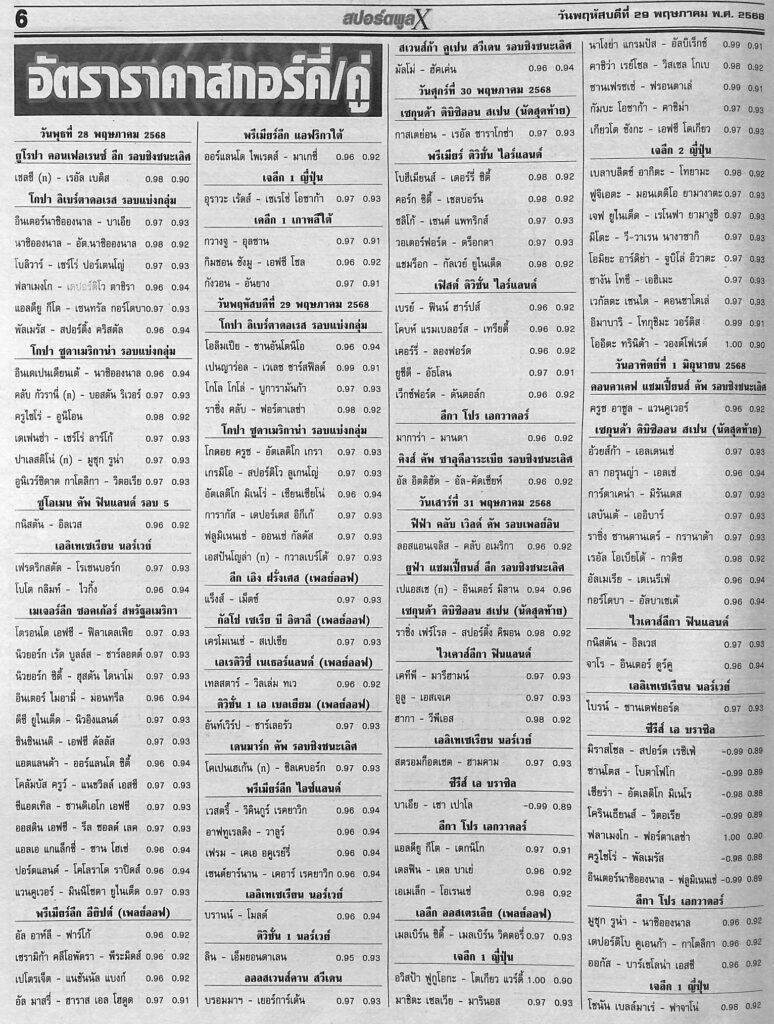 6
สปอร์ตพูลX
วันพฤหัสบดีที่ 29 พฤษภาคม พ.ศ. 2568
อัตราราคาสกอร์คี่/คู่
วันพุธที่ 28 พฤษภาคม 2568
ยูโรปา คอนเฟอเรนซ์ ลีก รอบชิงชนะเลิศ
เชลซี (n) - เรอัล เบติส 0.98 0.90
โกปา ลิเบร์ตาดอเรส รอบแบ่งกลุ่ม
อินเตอร์นาซิอองนาล - บาเอีย 0.97 0.93
นาซิอองนาล - อัต.นาซิอองนาล 0.98 0.92
โบลิวาร์ - เซร์โร ปอร์เตนโญ่ 0.97 0.93
ฟลาเมงโก - เดปอร์ติโว ตาชิรา 0.96 0.94
แอลดียู กีโต - เซนทรัล กอร์โดบา 0.97 0.93
พัลเมรัส - สปอร์ติ้ง คริสตัล 0.96 0.94
โกปา ซูดาเมริกาน่า รอบแบ่งกลุ่ม
อินเดเปนเดียนเต้ - นาซิอองนาล 0.96 0.94
คลับ กัวรานี (n) - บอสตัน ริเวอร์ 0.97 0.93
ครูไซโร่ - อูนิโอน 0.98 0.92
เดเฟนซ่า - เซร์โร ลาร์โก้ 0.97 0.93
ปาเลสติโน่ (n) - มูชุก รูน่า 0.97 0.93
อูนิเวร์ซิดาด กาโตลิกา - วิตอเรีย 0.97 0.93
ซูโอเมน คัพ ฟินแลนด์ รอบ 5
กนิสตัน - อิลเวส 0.96 0.92
เอลิทเซเรียน นอร์เวย์
เฟรดริกสตัด - โรเซนบอร์ก 0.97 0.93
โบโด กลิมท์ - ไวกิ้ง 0.96 0.94
เมเจอร์ลีก ซอคเก้อร์ สหรัฐอเมริกา
โตรอนโต เอฟซี - ฟิลาเดลเฟีย 0.97 0.93
นิวยอร์ก เร้ด บูลล์ส - ชาร์ลอตต์ 0.97 0.93
นิวยอร์ก ซิตี้ - ฮุสตัน ไดนาโม 0.97 0.93
อินเตอร์ ไมอามี่ - ม่อนทรีล 0.96 0.94
ดีซี ยูไนเต็ด - นิวอิงแลนด์ 0.97 0.93
ซินซินเนติ - เอฟซี ดัลลัส 0.97 0.93
แอตแลนต้า - ออร์แลนโด ซิตี้ 0.96 0.94
โคลัมบัส ครูว์ - แนชวิลล์ เอสซี 0.97 0.93
ซีแอตเทิล - ซานดิเอโก เอฟซี 0.97 0.93
ออสติน เอฟซี - รีล ซอลต์ เลค 0.97 0.93
แอลเอ แกแล็กซี่ - ซาน โฮเซ่ 0.96 0.94
ปอร์ตแลนด์ - โคโลราโด ราปิดส์ 0.97 0.93
แวนคูเวอร์ - มินนิโซตา ยูไนเต็ด 0.97 0.93
พรีเมียร์ลีก อียิปต์ (เพลย์ออฟ)
อัล อาห์ลี - ฟาร์โก้ 0.96 0.92
เซรามิก้า คลีโอพัตรา - พีระมิดส์ 0.96 0.92
เปโตรเจ็ต - แนชันนัล แบงก์ 0.96 0.92
อัล มาสรี่ - ฮาราส เอล โฮดูด 0.97 0.91
พรีเมียร์ลีก แอฟริกาใต้
ออร์แลนโด ไพเรตส์ - มาเกซี่ 0.96 0.92
เจลีก 1 ญี่ปุ่น
อุราวะ เร้ดส์ - เซเรโซ่ โอซาก้า 0.97 0.93
เคลีก 1 เกาหลีใต้
กวางจู - อุลซาน 0.97 0.91
กิมชอน ซังมู - เอฟซี โซล 0.96 0.92
กังวอน - อันยาง 0.97 0.91
วันพฤหัสบดีที่ 29 พฤษภาคม 2568
โกปา ลิเบร์ตาดอเรส รอบแบ่งกลุ่ม
โอลิมเปีย - ซานอันโตนิโอ 0.96 0.94
เปนญาร์อล - เวเลซ ซาร์สฟิลด์ 0.99 0.91
โกโล โกโล่ - บูการามันก้า 0.97 0.93
ราซิ่ง คลับ - ฟอร์ตาเลซ่า 0.98 0.92
โกปา ซูดาเมริกาน่า รอบแบ่งกลุ่ม
โกดอย ครูซ - อัตเลติโก เกรา 0.97 0.93
เกรมิโอ - สปอร์ติโว ลูเกนโญ่ 0.97 0.93
อัตเลติโก มิเนโร่ - เซียนเซียโน่ 0.96 0.94
การากัส - เดปอร์เตส อิกีเก้ 0.97 0.93
ฟลูมิเนนเซ่ - ออนเซ่ กัลดัส 0.97 0.93
เอสปันโญล่า (n) - กวาลเบร์โต้ 0.97 0.93
ลีก เอิง ฝรั่งเศส (เพลย์ออฟ)
แร็งส์ - เม็ตซ์ 0.97 0.93
กัลโช่ เซเรีย บี อิตาลี (เพลย์ออฟ)
เครโมเนเซ่ - สเปเซีย 0.97 0.93
เอเรดิวิซี่ เนเธอร์แลนด์ (เพลย์ออฟ)
เทลสตาร์ - วิลเล่ม ทเว 0.96 0.92
ดิวิชั่น 1 เอ เบลเยียม (เพลย์ออฟ)
อันท์เวิร์ป - ชาร์เลอรัว 0.97 0.93
เดนมาร์ก คัพ รอบชิงชนะเลิศ
โคเปนเฮเก้น (n) - ซิลเคบอร์ก 0.97 0.93
พรีเมียร์ลีก ไอซ์แลนด์
เวสตรี้ - วิคินกูร์ เรคยาวิก 0.96 0.94
อาฟทูเรลดิง - วาลูร์ 0.96 0.94
เฟรม - เคเอ อคูเรย์รี่ 0.96 0.94
เซนต์ยาร์นาน - เคอาร์ เรคยาวิก 0.96 0.94
เอลิทเซเรียน นอร์เวย์
บรานน์ - โมลด์ 0.96 0.94
ดิวิชั่น 1 นอร์เวย์
ลิน - เอ็มยอนดาเลน 0.95 0.93
ออลสเวนส์คาน สวีเดน
บรอมมาฯ - เยอร์การ์เด้น 0.97 0.93
สเวนส์ก้า คูเปน สวีเดน รอบชิงชนะเลิศ
มัลโม่ - ฮัคเค่น 0.96 0.94
วันศุกร์ที่ 30 พฤษภาคม 2568
เซกุนด้า ดิบิซิออน สเปน (นัดสุดท้าย)
กาสเตยอน - เรอัล ซาราโกซ่า 0.97 0.93
พรีเมียร์ ดิวิชั่น ไอร์แลนด์
โบฮีเมียนส์ - เดอร์รี่ ซิตี้ 0.98 0.92
คอร์ก ซิตี้ - เชลบอร์น 0.98 0.92
ชลิโก้ - เซนต์ แพทริกส์ 0.97 0.93
วอเตอร์ฟอร์ด - ดร็อกดา 0.97 0.93
แชมร็อก - กัลเวย์ ยูไนเต็ด 0.98 0.92
เฟิสต์ ดิวิชั่น ไอร์แลนด์
เบรย์ - ฟินน์ ฮาร์ปส์ 0.96 0.92
โคบห์ แรมเบลอร์ส - เทรียตี้ 0.96 0.92
เคอร์รี่ - ลองฟอร์ด 0.96 0.92
ยูซีดี - อัธโลน 0.97 0.91
เว็กซ์ฟอร์ด - ดันดอล์ก 0.96 0.92
ลีกา โปร เอกวาดอร์
มาการ่า - มานตา 0.96 0.92
คิงส์ คัพ ซาอุดีอาระเบีย รอบชิงชนะเลิศ
อัล อิตติฮัด - อัล-คัดเซียห์ 0.96 0.92
วันเสาร์ที่ 31 พฤษภาคม 2568
ฟีฟ่า คลับ เวิลด์ คัพ รอบเพลย์อิน
ลอสแอนเจลิส - คลับ อเมริกา 0.96 0.92
ยูฟ่า แชมเปี้ยนส์ ลีก รอบชิงชนะเลิศ
เปแอสเช (n) - อินเตอร์ มิลาน 0.94 0.96
เซกุนด้า ดิบิซิออน สเปน (นัดสุดท้าย)
ราซิ่ง เฟร์โรล - สปอร์ติ้ง คิฆอน 0.98 0.92
ไวเคาส์ลีกา ฟินแลนด์
เคทีพี - มารีฮามน์ 0.97 0.93
อูลู - เอสเจเค 0.97 0.93
ฮากา - วีพีเอส 0.98 0.92
เอลิทเซเรียน นอร์เวย์
สตรอมก็อดเซต - ฮามคาม 0.97 0.93
ซีรีส์ เอ บราซิล
บาเอีย - เซา เปาโล -0.99 0.89
ลีกา โปร เอกวาดอร์
แอลดียู กีโต - เตกนิโก 0.97 0.91
เดลฟิน - เดล บาเย่ 0.96 0.92
เอเมเล็ก - โอเรนเซ่ 0.98 0.92
เอลีก ออสเตรเลีย (เพลย์ออฟ)
เมลเบิร์น ซิตี้ - เมลเบิร์น วิคตอรี่ 0.97 0.93
เจลีก 1 ญี่ปุ่น
อวิสป้า ฟูกูโอกะ - โตเกียว แวร์ดี้ 1.00 0.90
มาชิดะ เซลเวีย - มารินอส 0.97 0.93
นาโงย่า แกรมปัส - อัลบิเร็กซ์ 0.99 0.91
คาชิว่า เรย์โซล - วิสเซล โกเบ 0.98 0.92
ซานเฟรซเซ่ - ฟรอนตาเล่ 0.97 0.93
กัมบะ โอซาก้า - คาชิม่า 0.97 0.93
เกียวโต ซังกะ - เอฟซี โตเกียว 0.97 0.93
เจลีก 2 ญี่ปุ่น
เบลาบลิตซ์ อากิตะ - โทยามะ 0.98 0.92
ฟูจิเอดะ - มอนเตดิโอ ยามางาตะ 0.97 0.93
เจฟ ยูไนเต็ด - เรโนฟา ยามางูชิ 0.97 0.93
มิโตะ - วี-วาเรน นางาซากิ 0.97 0.93
โอมิยะ อาร์ดิย่า - จูบิโล่ อิวาตะ 0.98 0.92
ซางัน โทซึ - เอฮิเมะ 0.97 0.93
เวกัลตะ เซนได - คอนซาโดเล่ 0.97 0.93
อิมาบาริ - โทกุชิมะ วอร์ติส 0.99 0.91
โออิตะ ทรินิต้า - วองต์โฟเรต์ 1.00 0.90
วันอาทิตย์ที่ 1 มิถุนายน 2568
คอนคาเคฟ แชมเปี้ยนส์ คัพ รอบชิงชนะเลิศ
ครูซ อาซูล - แวนคูเวอร์ 0.96 0.92
เซกุนด้า ดิบิซิออน สเปน (นัดสุดท้าย)
อ้วยส์ก้า - เอลเดนเซ่ 0.97 0.93
ลา กอรุนญ่า - เอลเช่ 0.96 0.94
การ์ตาเคน่า - มิรันเดส 0.97 0.93
เลบันเต้ - เออิบาร์ 0.97 0.93
ราซิ่ง ซานตานเดร์ - กรานาด้า 0.97 0.93
เรอัล โอเบียโด้ - กาดิซ 0.98 0.92
อัลเมเรีย - เตเนริเฟ่ 0.96 0.94
กอร์โดบา - อัลบาเซเต้ 0.96 0.94
ไวเคาส์ลีกา ฟินแลนด์
กนิสตัน - อิลเวส 0.97 0.93
จาโร - อินเตอร์ ตูร์คู 0.96 0.94
เอลิทเซเรียน นอร์เวย์
ไบรน์ - ซานเดฟยอร์ด 0.97 0.93
ซีรีส์ เอ บราซิล
มิราสโซล - สปอร์ต เรซิเฟ่ -0.99 0.89
ซานโตส - โบตาโฟโก -0.99 0.89
เซียร่า - อัตเลติโก มิเนโร -0.98 0.88
โครินเธียนส์ - วิตอเรีย -0.99 0.89
ฟลาเมงโก - ฟอร์ตาเลซ่า 1.00 0.90
ครูไซโร่ - พัลเมรัส -0.98 0.88
อินเตอร์นาซิอองนาล - ฟลูมิเนนเซ่ -0.99 0.89
ลีกา โปร เอกวาดอร์
มูชุก รูน่า - นาซิอองนาล 0.96 0.92
เดปอร์ติโบ คูเอนก้า - กาโตลิกา 0.96 0.92
ออกัส - บาร์เซโลน่า เอสซี 0.96 0.92
เจลีก 1 ญี่ปุ่น
โชนัน เบลล์มาเร่ - ฟาจาโน่ 0.98 0.92